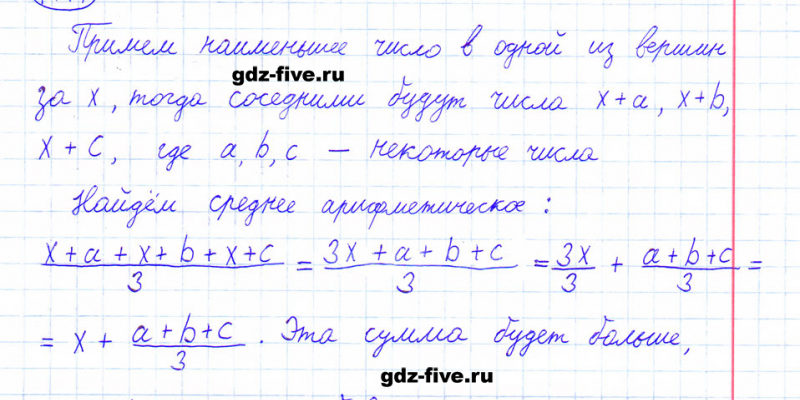 Примем наименьшее число в одной из вершин
gdz-five.ru
за x, тогда соседними будут числа x+a, x+b,
x + c, где a, b, c — некоторые числа
Найдём среднее арифметическое:
(x+a+x+b+x+c)/3 = (3x+a+b+c)/3 = 3x/3 + (a+b+c)/3 =
= x + (a+b+c)/3. Эта сумма будет больше,
gdz-five.ru